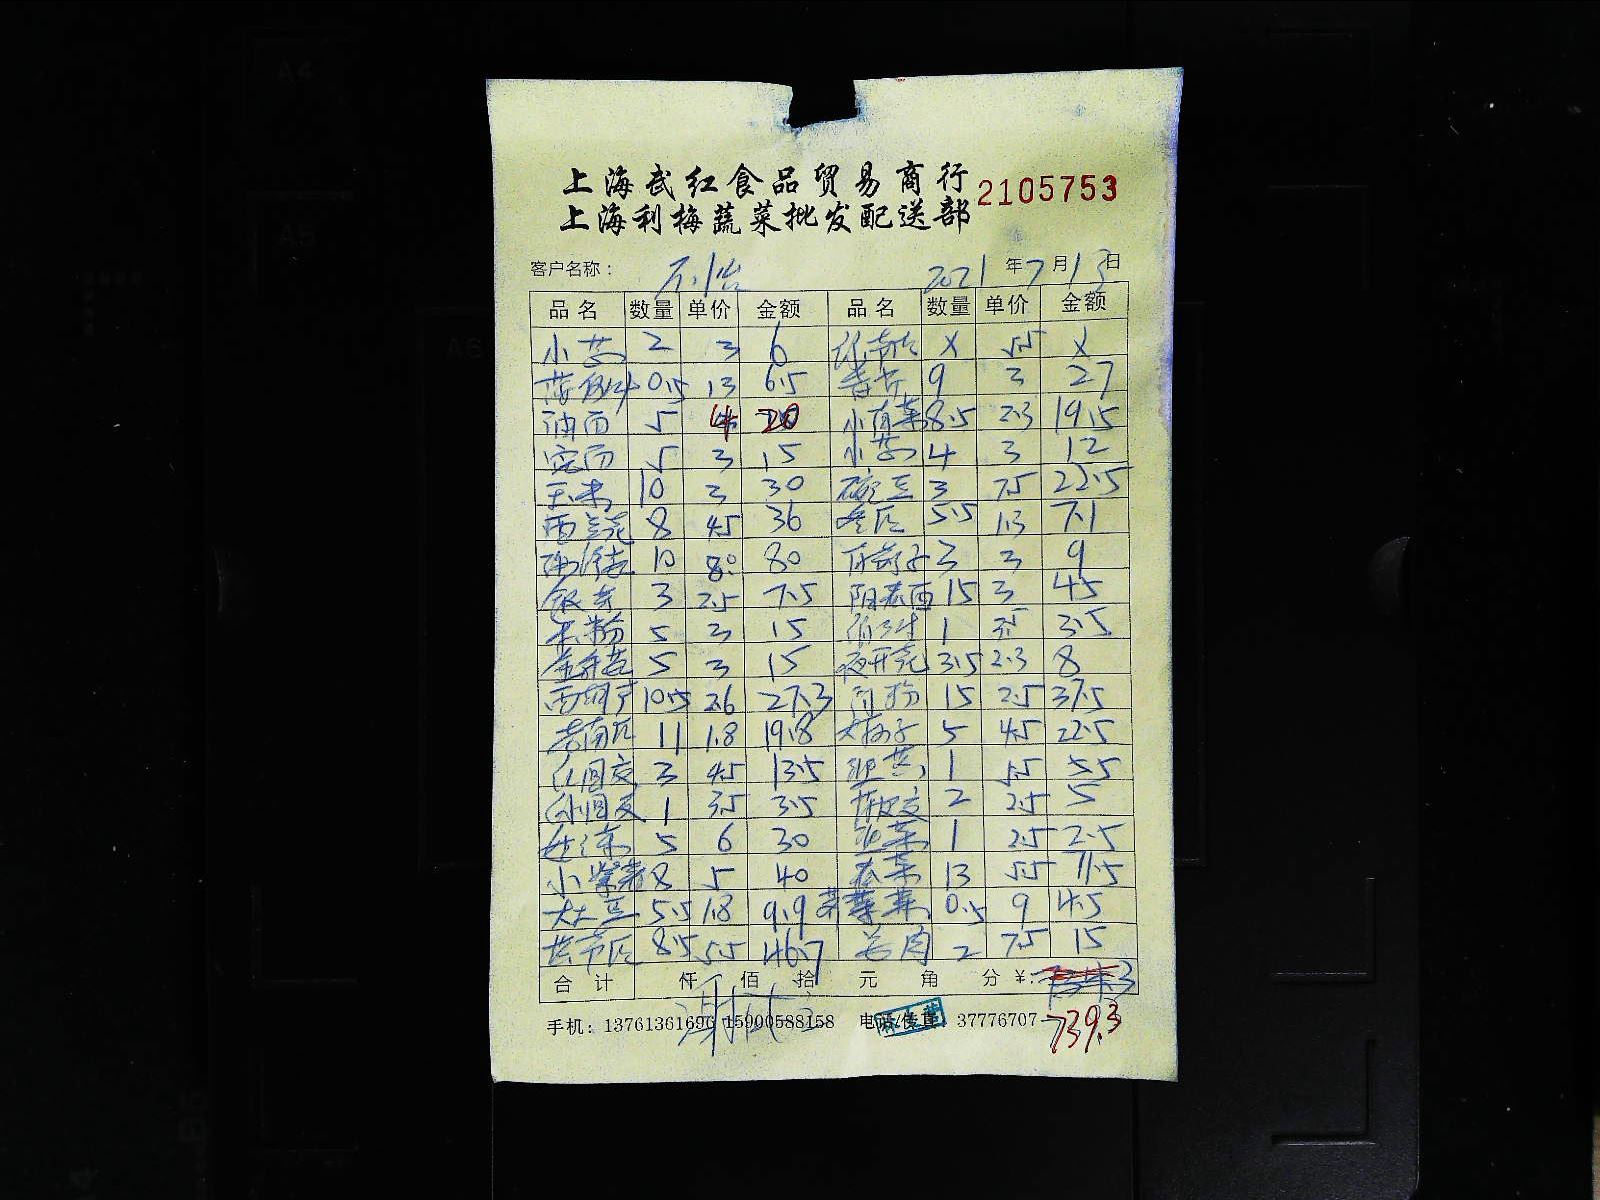 上海武红食品贸易商行
上海利梅蔬菜批发配送部
2105753
客户名称： 2021年7月13日
品名 数量 单价 金额 品名 数量 单价 金额
小葱 2 3 6 X 5.5 X
0.5 13 6.5 香芹 9 3 27
油面 5 4 20 小青菜 8.5 2.3 19.5
宽面 5 3 15 小葱 4 3 12
玉米 10 3 30 碗豆 3 7.5 22.5
西兰花 8 4.5 36 冬瓜 5.5 1.3 7.1
10 8.0 80 3 3 9
银芽 3 2.5 7.5 阳春面 15 3 45
米粉 5 3 15 1 3.5 3.5
金针菇 5 3 15 夜开花 3.5 2.3 8
西葫芦 10.5 2.6 27.3 15 2.5 37.5
老南瓜 11 1.8 19.8 大 子 5 4.5 22.5
红圆椒 3 4.5 13.5 1 5.5 5.5
1 3.5 3.5 2 2.5 5
5 6 30 韭菜 1 2.5 2.5
小紫薯 8 5 40 13 5.5 71.5
土豆 5.5 1.8 9.9 菜 0.5 9 4.5
8.5 5.5 46.7 姜肉 2 7.5 15
合计 仟 佰 拾 元 角 分 ¥:
手机：13761361696 15900588158 电话/传真：37776707
739.3